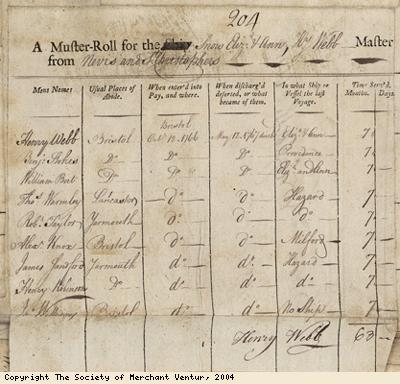 204
A Muster-Roll for the Snow Eliz. & Ann, Hy. Webb Master
from Nevis and St. Christophers
Mens Names Usual Places of Abode. When enter'd into Pay, and where. When discharg'd deserted, or what became of them. In what Ship or Vessel the last Voyage. Time Serv'd. Months. Days.
Bristol
Henry Webb Bristol Octr. 10. 1766 May 12. 1767 Eliz. & Ann 7
Benj. Stokes Do. Do. Do. Providence 7
William Burt Do. Do. Do. Eliz. and Ann 7
Thos. Wormley Lancaster do. do. Hazard 7
Robt. Taylor Yarmouth do. do. do. 7
Alexr. Knox Bristol do. do. Milford 7
James Yarmouth do. do. Hazard 7
Henry Robinson Do. do. do. do. 7
Williams Bristol do. do. No Ship 7
Henry Webb 63
Copyright The Society of Merchant Ventur, 2004